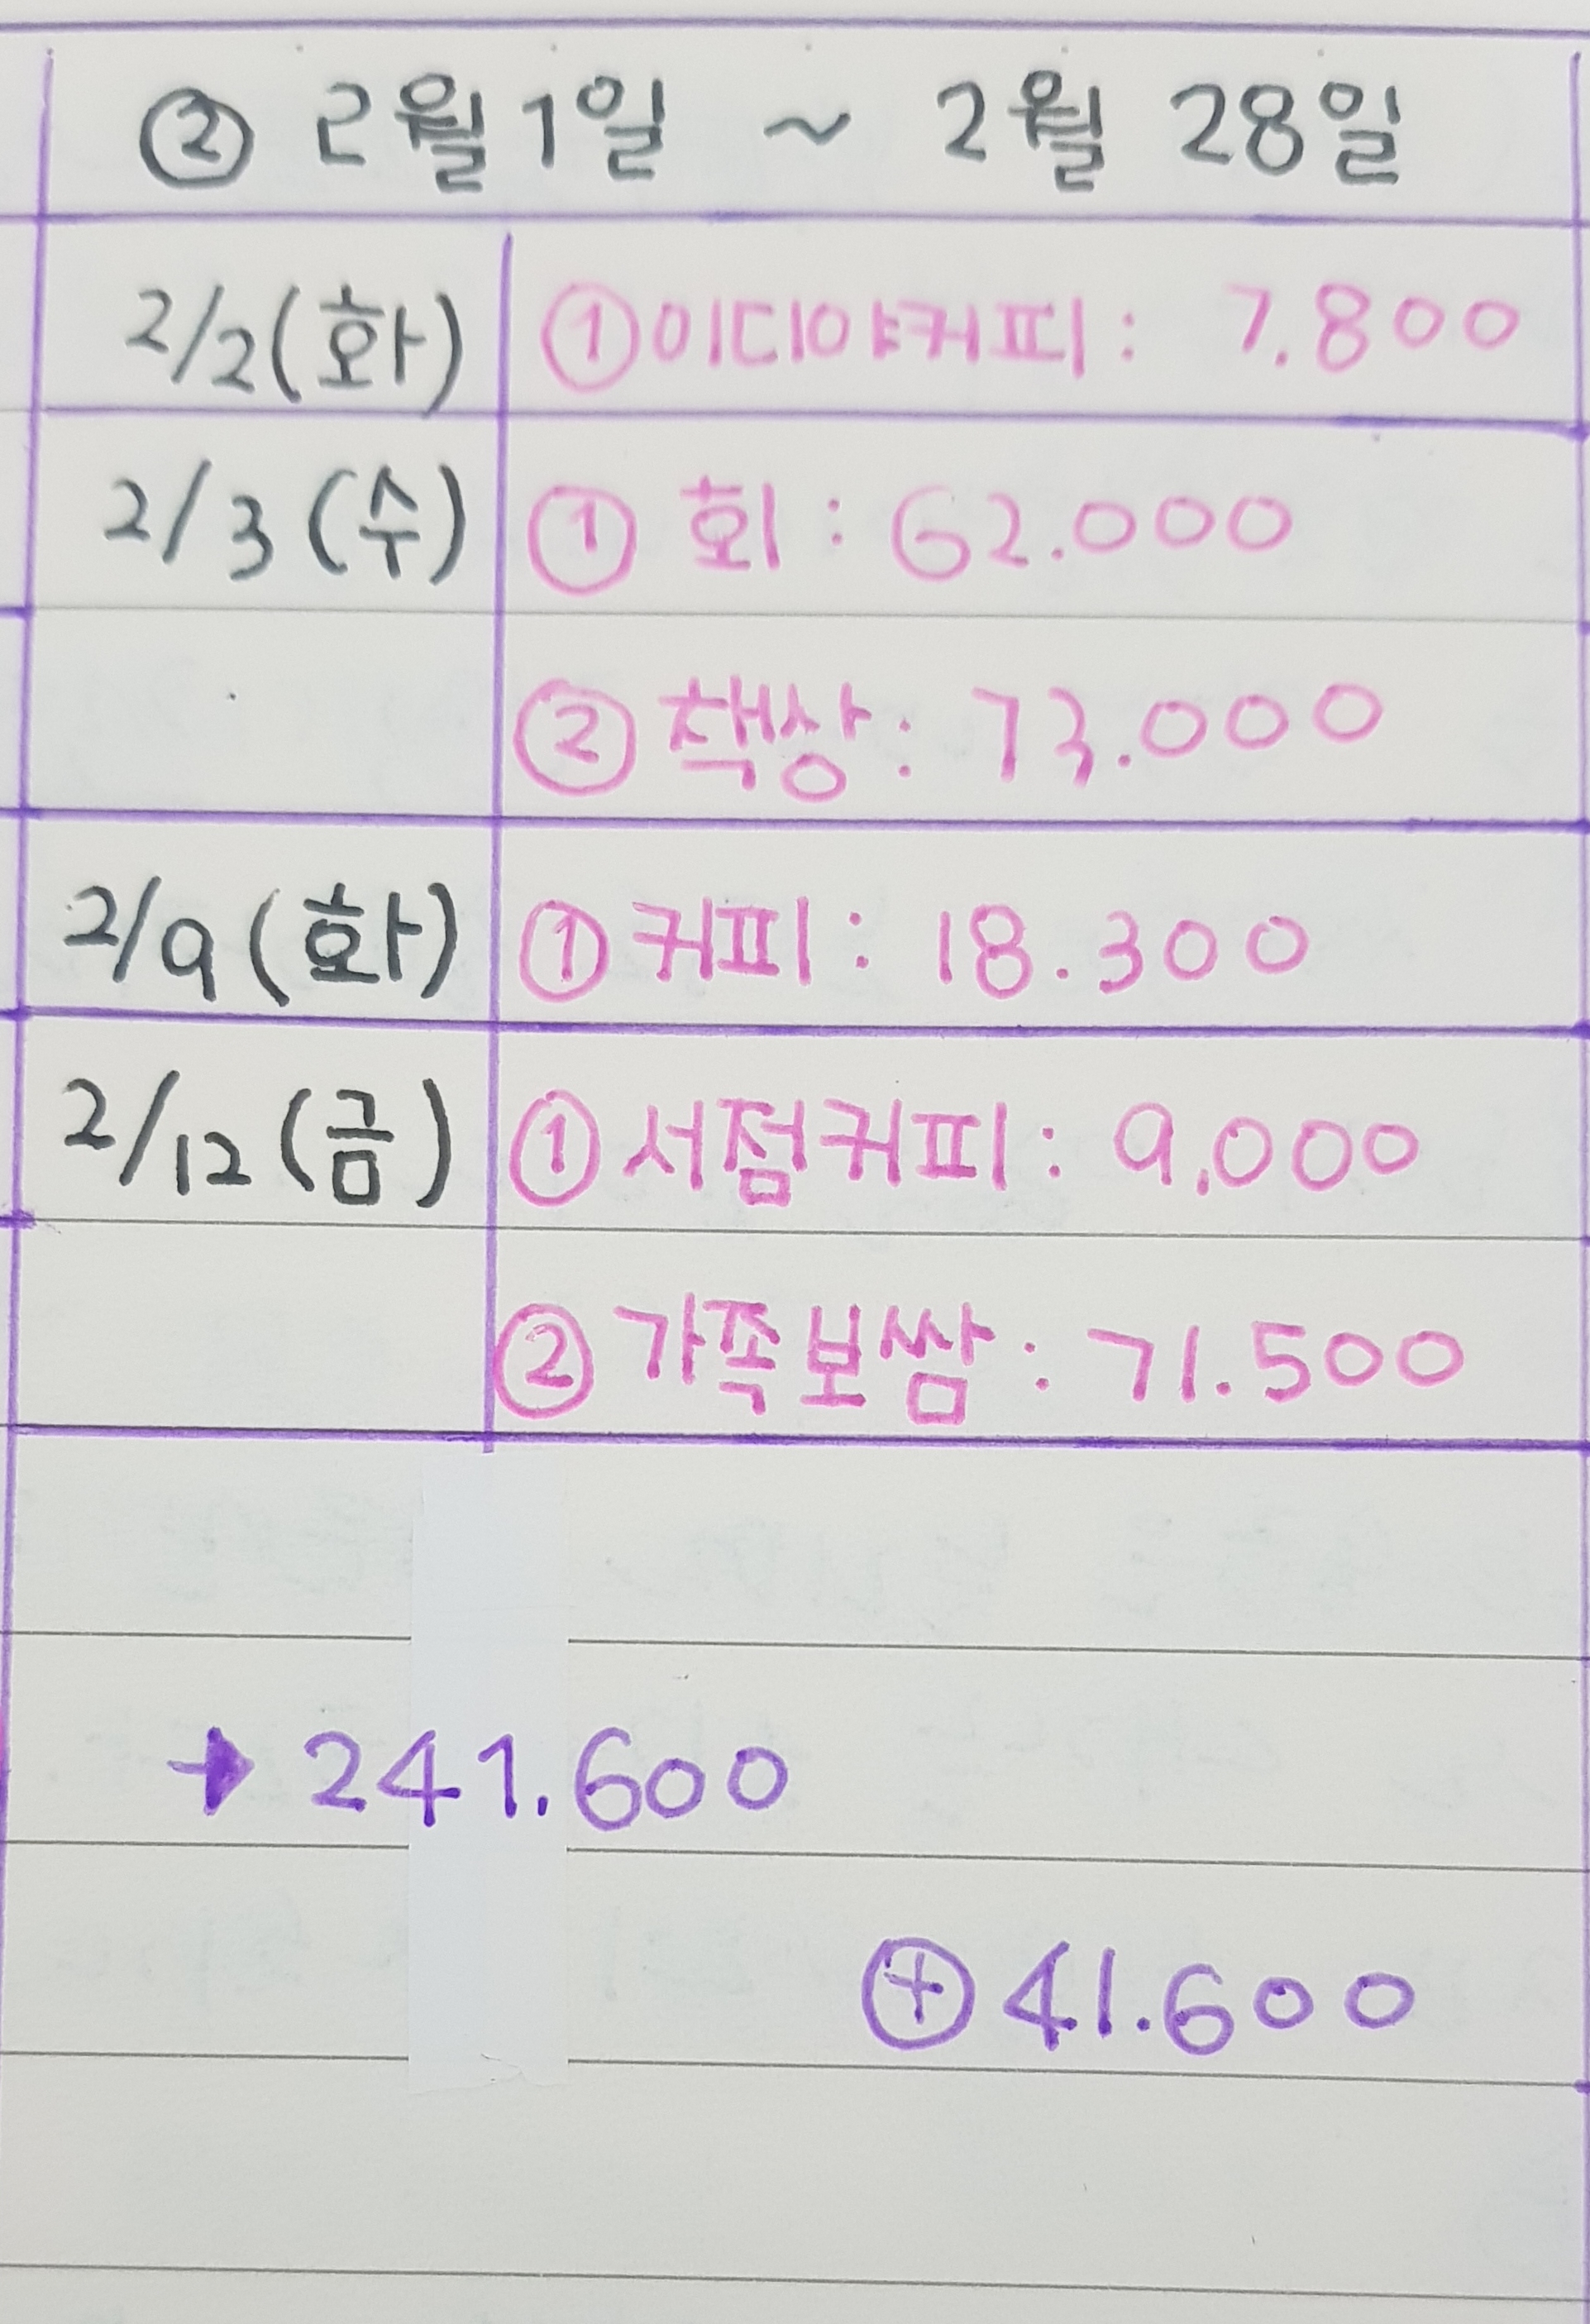 ② 2월 1일 ~ 2월 28일
2/2(화) ①이디야커피: 7.800
2/3(수) ① 회: 62.000
② 책상: 73.000
2/9(화) ①커피: 18.300
2/12(금) ①서점커피: 9.000
② 가족보쌈: 71.500
→ 241.600
⊕ 41.600